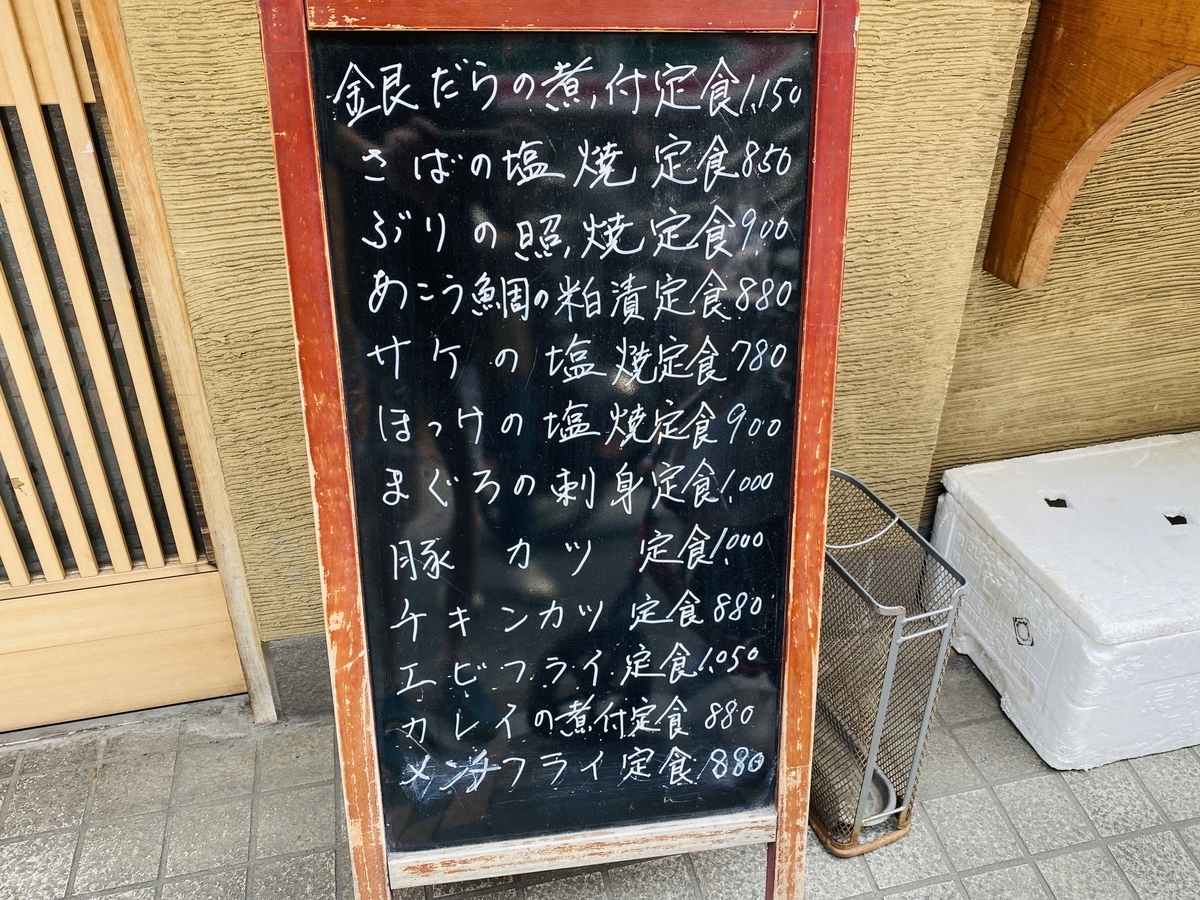 銀だらの煮付定食1,150
さばの塩焼定食850
ぶりの照焼定食900
めこう鯛の粕漬定食880
サケの塩焼定食780
ほっけの塩焼定食900
まぐろの刺身定食1,000
豚カツ定食1,000
チキンカツ定食880
エビフライ定食1,050
カレイの煮付定食880
フライ定食880